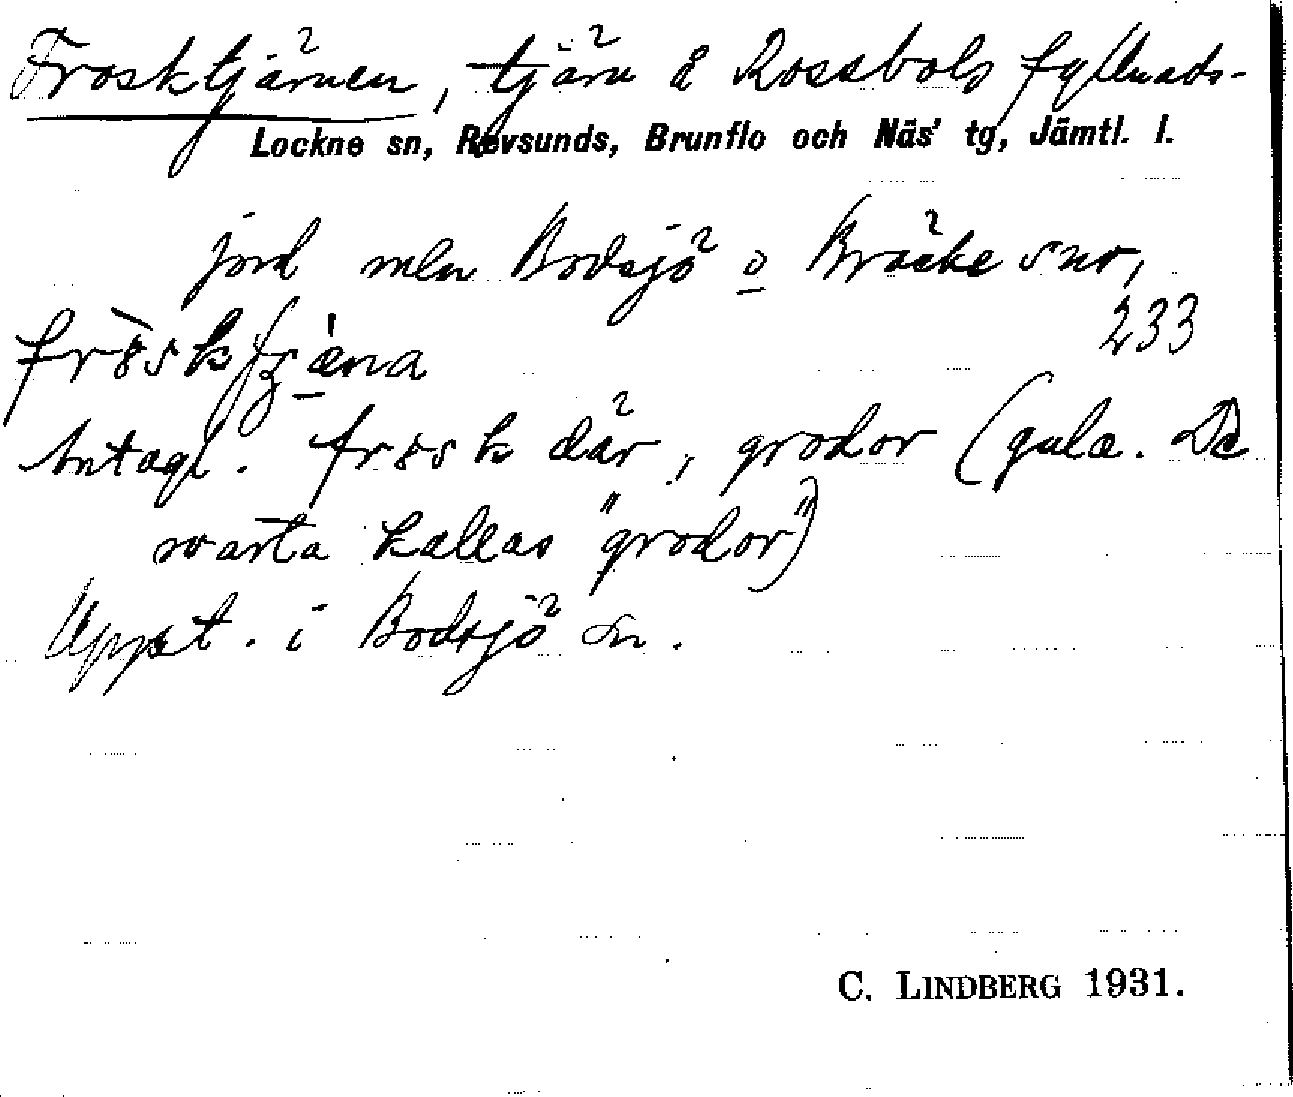 Frosktjärnen, tjärn å Rossbols fyllnads-
Lockne sn, Revsunds, Brunflo och Näs' tg, Jämtl. l.
jord mln Bodsjö o Bräcke snr,
233
Antagl. frösk där, grodor (gula. De
svarta kallas "grodor")
Uppt. i Bodsjö sn.
C. LINDBERG 1931.